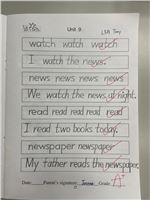 Unit 9
watch watch watch
I watch the news.
news news news news
We watch the news at night.
read read read read read
I read two books today.
newspaper newspaper
My father reads the newspaper.
Date: Parent's signature: Grade: A+